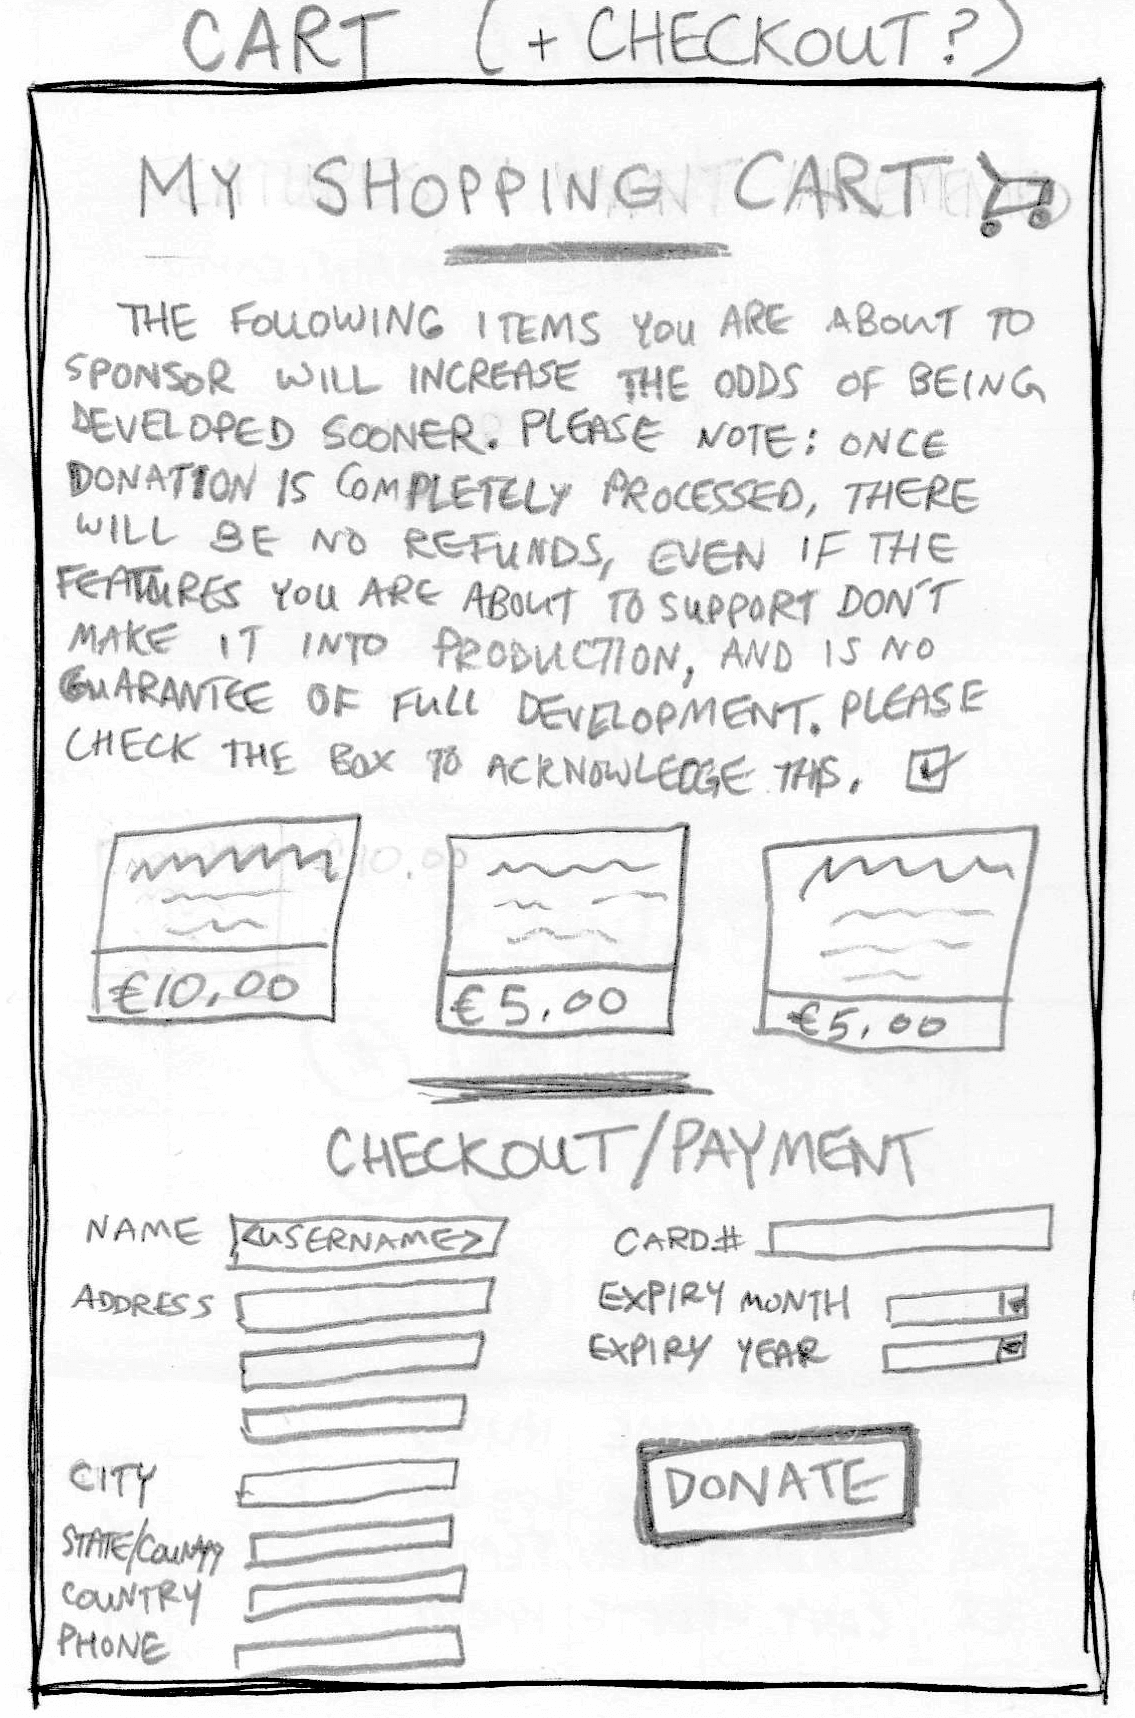 CART (+ CHECKOUT?)
MY SHOPPING CART
THE FOLLOWING ITEMS YOU ARE ABOUT TO
SPONSOR WILL INCREASE THE ODDS OF BEING
DEVELOPED SOONER. PLEASE NOTE: ONCE
DONATION IS COMPLETELY PROCESSED, THERE
WILL BE NO REFUNDS, EVEN IF THE
FEATURES YOU ARE ABOUT TO SUPPORT DON'T
MAKE IT INTO PRODUCTION, AND IS NO
GUARANTEE OF FULL DEVELOPMENT. PLEASE
CHECK THE BOX TO ACKNOWLEDGE THIS.
€10.00
€5.00
€5.00
CHECKOUT/PAYMENT
NAME <USERNAME>
CARD#
ADDRESS
EXPIRY MONTH
EXPIRY YEAR
CITY
DONATE
STATE/COUNTY
COUNTRY
PHONE